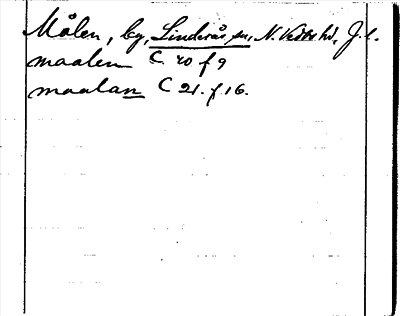 Målen, by, Linderås sn, N. Vedbo hd, J. l.
maalen C 20 f 9
maalan C 21. f 16.